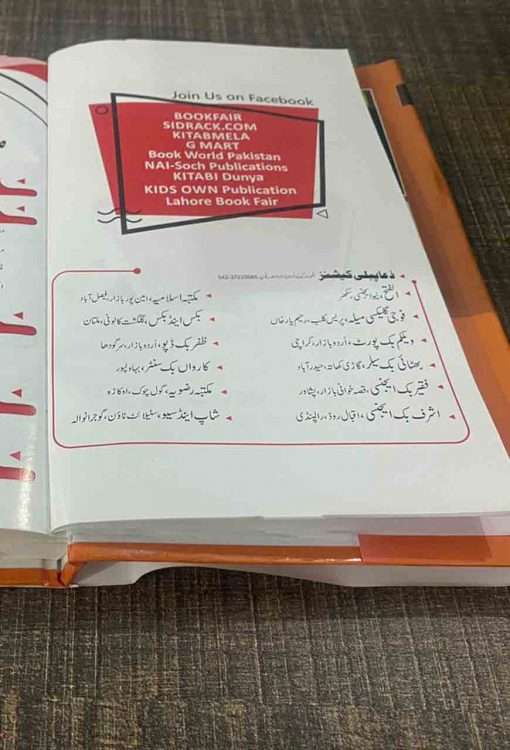 Join Us on Facebook
BOOKFAIR
SIDRACK.COM
KITABMELA
G MART
Book World Pakistan
NAI-Soch Publications
KITABI Dunya
KIDS OWN Publication
Lahore Book Fair
دعا پبلی کیشنز
الفتح نیوز ایجنسی، سکھر
فوجی گلیکسی میلہ، پریس کلب، رحیم یار خاں
ویلکم بک پورٹ، اُردو بازار، کراچی
بھٹائی بک سیلر، گاڑی کھاتہ، حیدرآباد
فقیر بک ایجنسی، قصہ خوانی بازار، پشاور
اشرف بک ایجنسی، اقبال روڈ، راولپنڈی
مکتبہ اسلامیہ، امین پور بازار، فیصل آباد
بکس اینڈ بکس، گلگشت کالونی، ملتان
ظفر بک ڈپو، اُردو بازار، سرگودھا
کارواں بک سنٹر، بہاولپور
مکتبہ رضویہ، گول چوک، اوکاڑہ
شاپ اینڈ سیو، سٹیلائٹ ٹاؤن، گوجرانوالہ